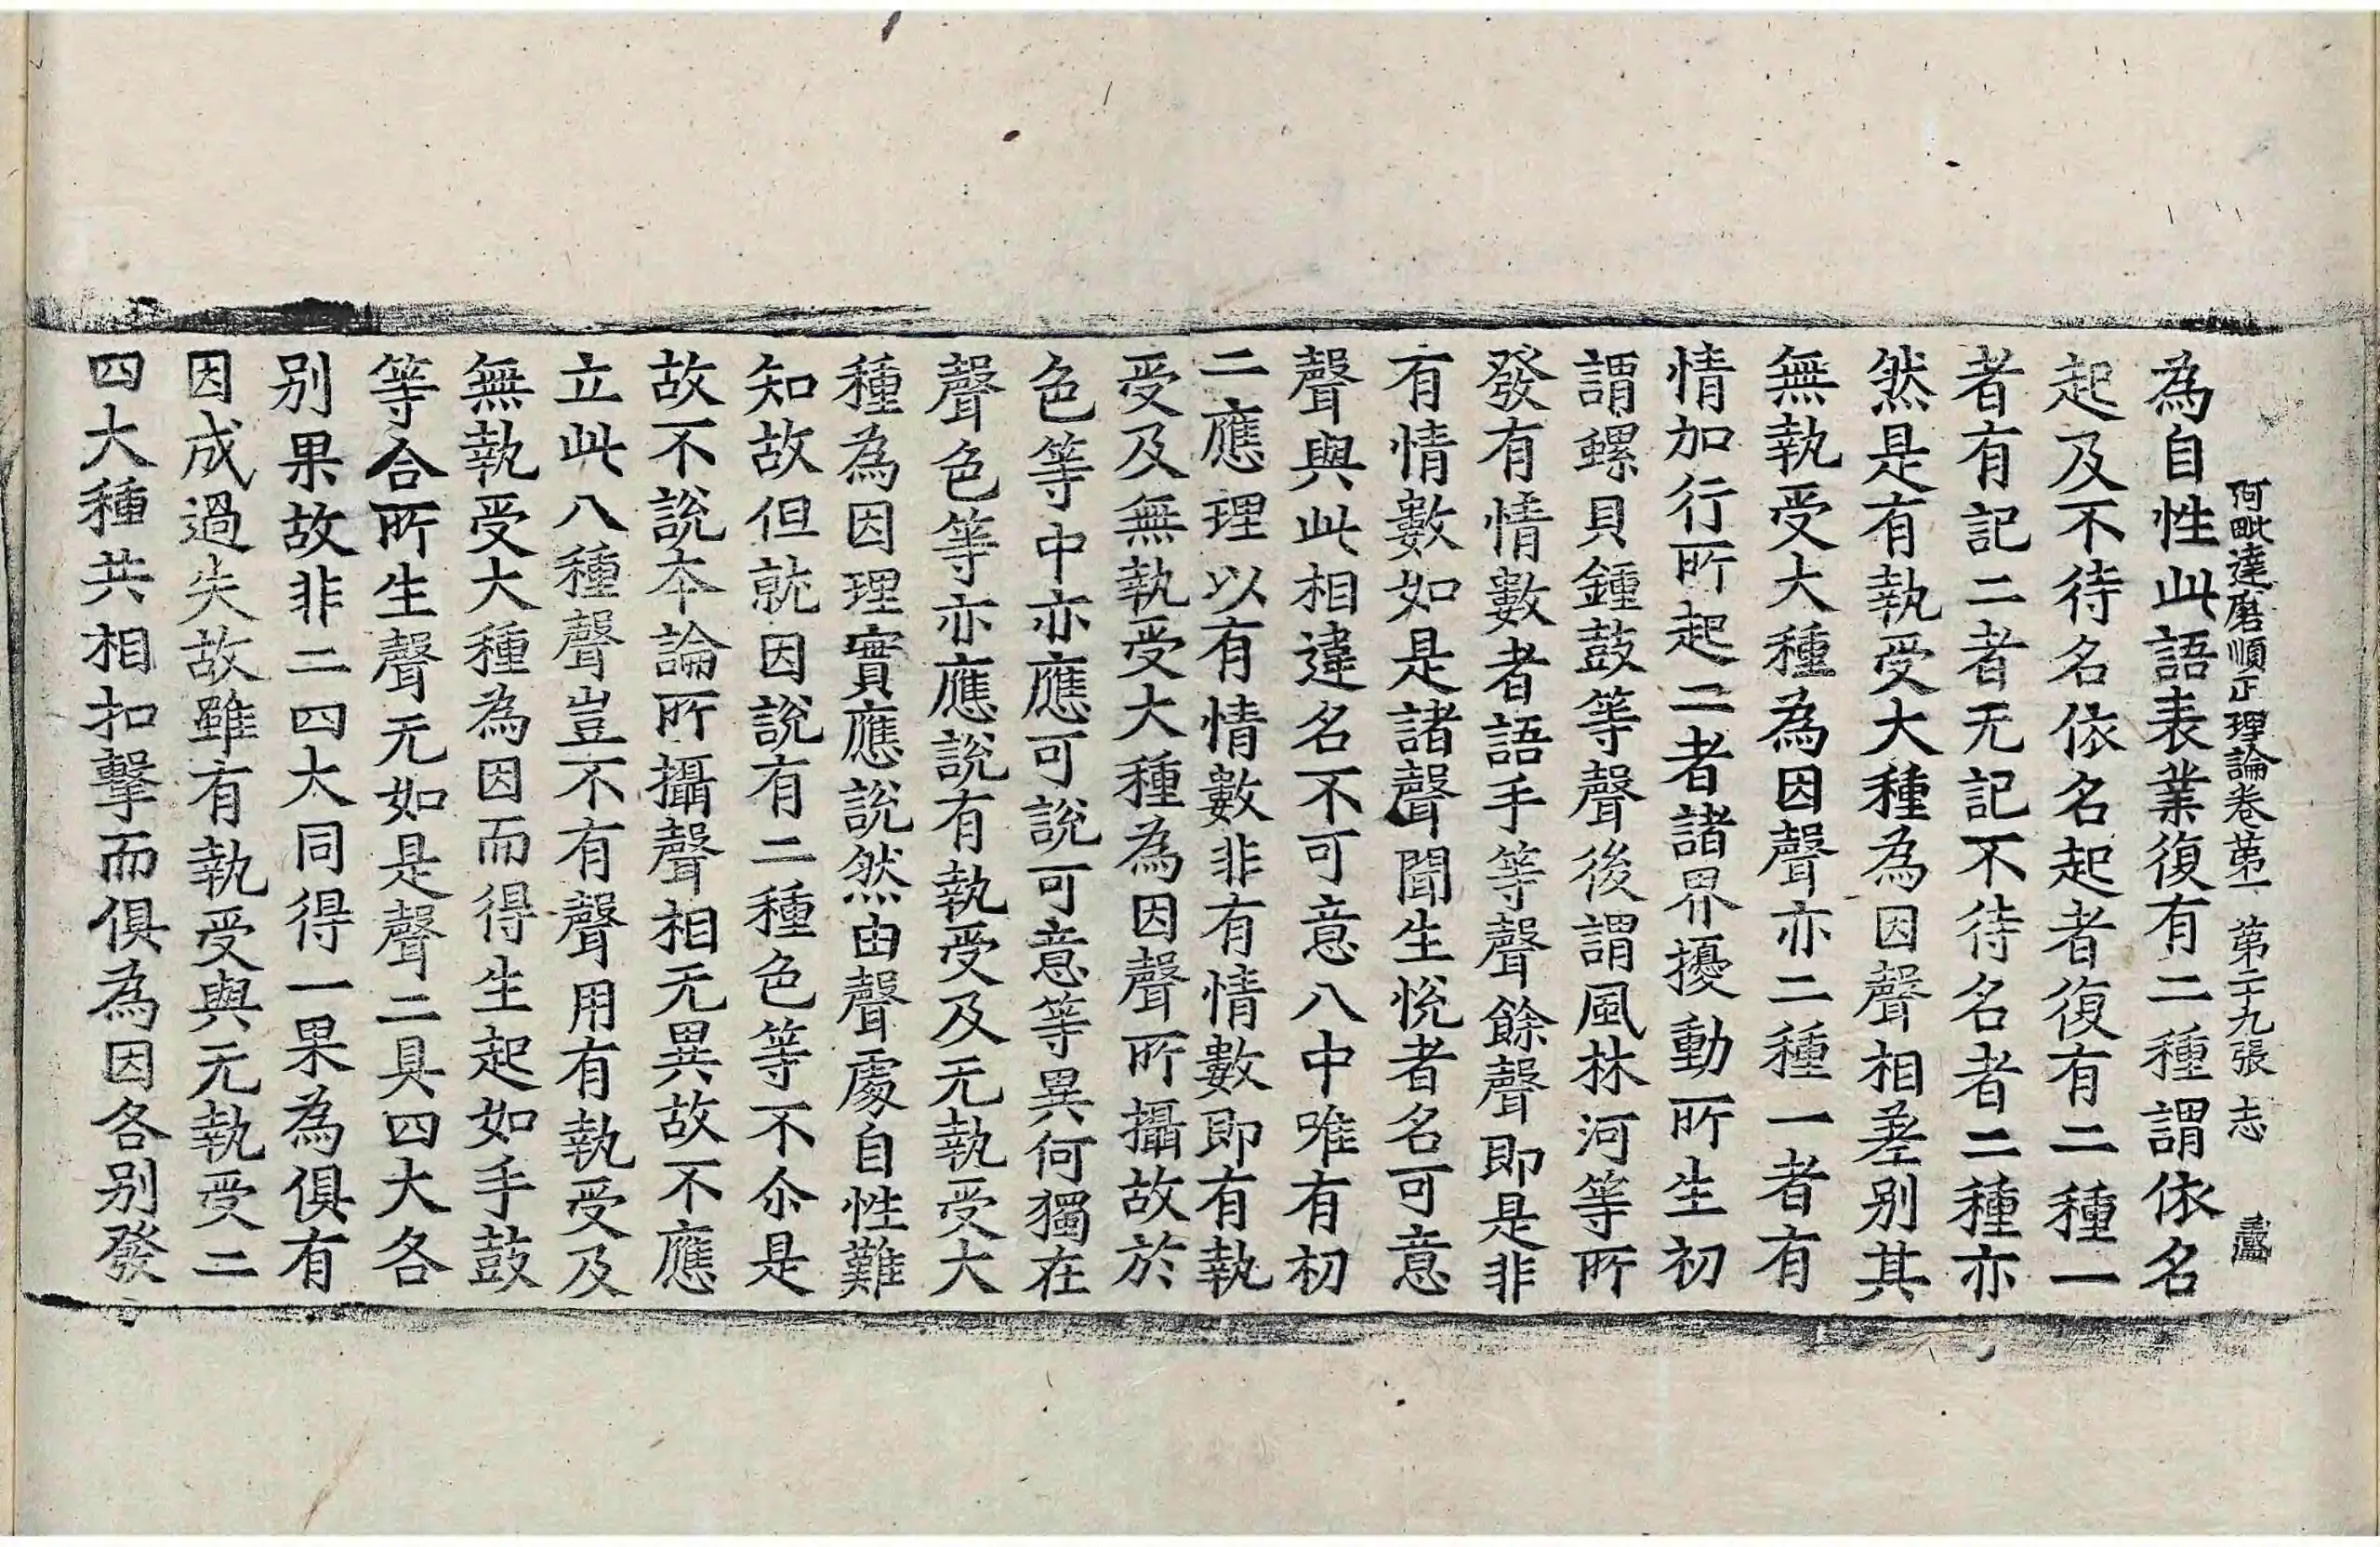 阿毗達磨順正理論卷第一 第二十九張 志
為自性此語表業復有二種謂依名
起及不待名依名起者復有二種一
者有記二者无記不待名者二種亦
然是有執受大種為因聲相差别其
無執受大種為因聲亦二種一者有
情加行所起二者諸界擾動所生初
謂螺貝鍾鼓等聲後謂風林河等所
發有情數者語手等聲餘聲即是非
有情數如是諸聲聞生悅者名可意
聲與此相違名不可意八中唯有初
二應理以有情數非有情數即有執
受及無執受大種為因聲所攝故於
色等中亦應可說可意等異何獨在
聲色等亦應說有執受及无執受大
種為因理實應說然由聲處自性難
知故但就因說有二種色等不尒是
故不說本論所攝聲相无異故不應
立此八種聲豈不有聲用有執受及
無執受大種為因而得生起如手鼓
等合所生聲无如是聲二具四大各
别果故非二四大同得一果為俱有
因成過失故雖有執受與无執受二
四大種共相扣擊而俱為因各别發